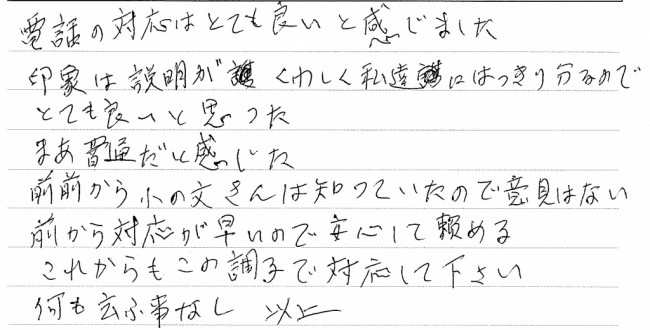 電話の対応はとても良いと感じました
印象は説明がくわしく私達にはっきり分るので
とても良いと思った
まあ普通だと感じた
前前から小の文さんは知っていたので意見はない
前から対応が早いので安心して頼める
これからもこの調子で対応して下さい
何も云ふ事なし 以上